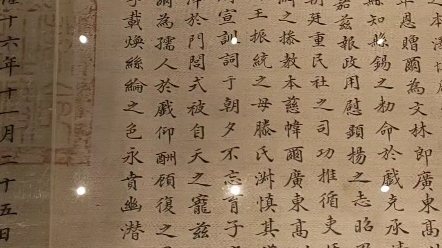 年恩贈爾為文林郎廣東高
縣知縣錫之勑命於戲克承清
嘉茲報政用慰顯揚之志昭
廷重民社之司功推循吏
淵之操教本慈幃爾廣東高
王振統之母滕氏淑慎其
宣訓詞于朝夕不忘育子
澤於門閭式被自天之寵茲
爾為孺人於戲仰酬顧復之
載煥絲綸之色永賁幽潛
隆十六年十一月二十五日